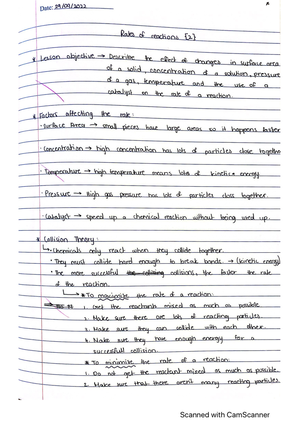 Date: 29/09/2022
Rate of reactions {2}
* Lesson objective → Describe the effect of changes in surface area
of a solid, concentration of a solution, pressure
of a gas, temperature and the use of a
catalyst on the rate of a reaction.
* Factors affecting the rate:
• Surface Area → small pieces have large areas so it happens faster
• Concentration → high concentration has lots of particles close together
• Temperature → high temperature means lots of kinetic energy
• Pressure → High gas pressure has lots of particles close together.
• Catalyst → speed up a chemical reaction without being used up.
* Collision Theory:
↳ Chemicals only react when they collide together.
• They must collide hard enough to break bonds → (kinetic energy)
• The more successful collisions, the faster the rate
of the reaction.
↳ * To maximise the rate of a reaction:
1. Get the reactants mixed as much as possible
2. Make sure there are lots of reacting particles.
3. Make sure they can collide with each other.
4. Make sure they have enough energy for a
successfull collision.
* To minimise the rate of a reaction:
1. Do not get the reactant mixed as much as possible.
2. Make sure that there aren't many reacting particles
Scanned with CamScanner